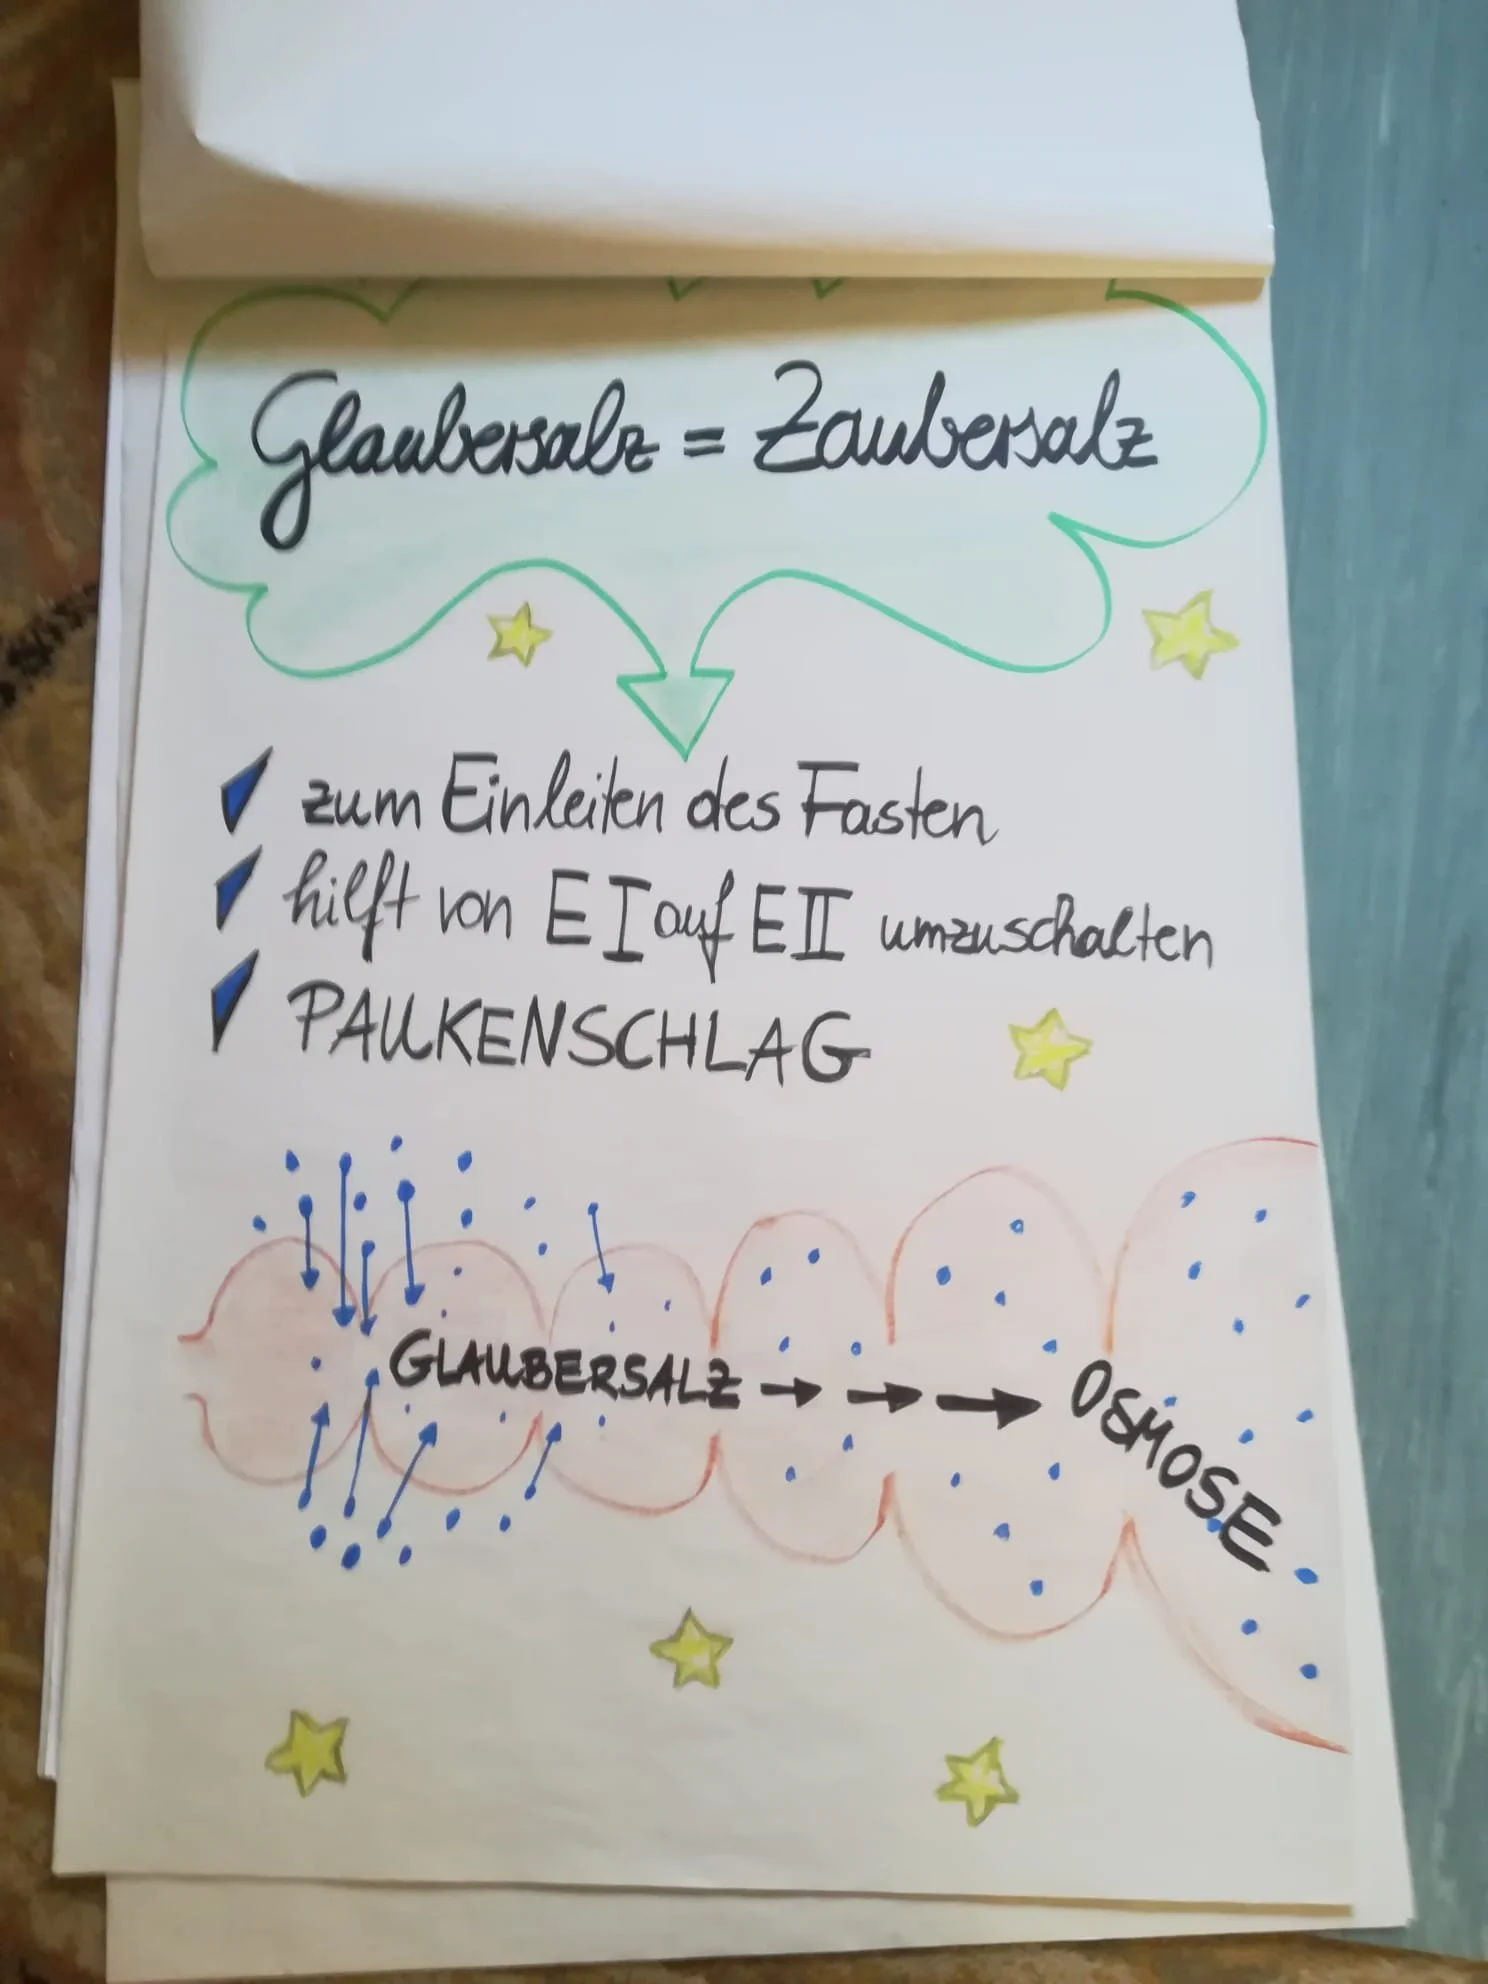 Glaubersalz = Zaubersalz
zum Einleiten des Fasten
hilft von E I auf E II umzuschalten
PAUKENSCHLAG
GLAUBERSALZ → → → OSMOSE